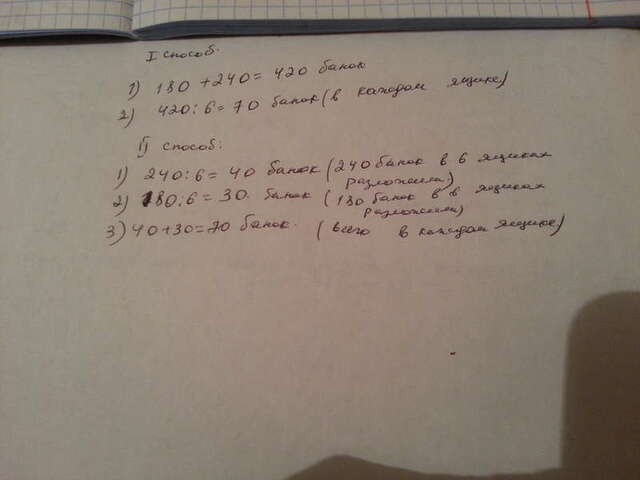 I способ.
1) 180 + 240 = 420 банок
2) 420 : 6 = 70 банок (в каждом ящике)
II способ:
1) 240 : 6 = 40 банок (240 банок в 6 ящиках
разложили.)
2) 180 : 6 = 30. банок (180 банок в 6 ящиках
разложили)
3) 40 + 30 = 70 банок. (всего в каждом ящике)